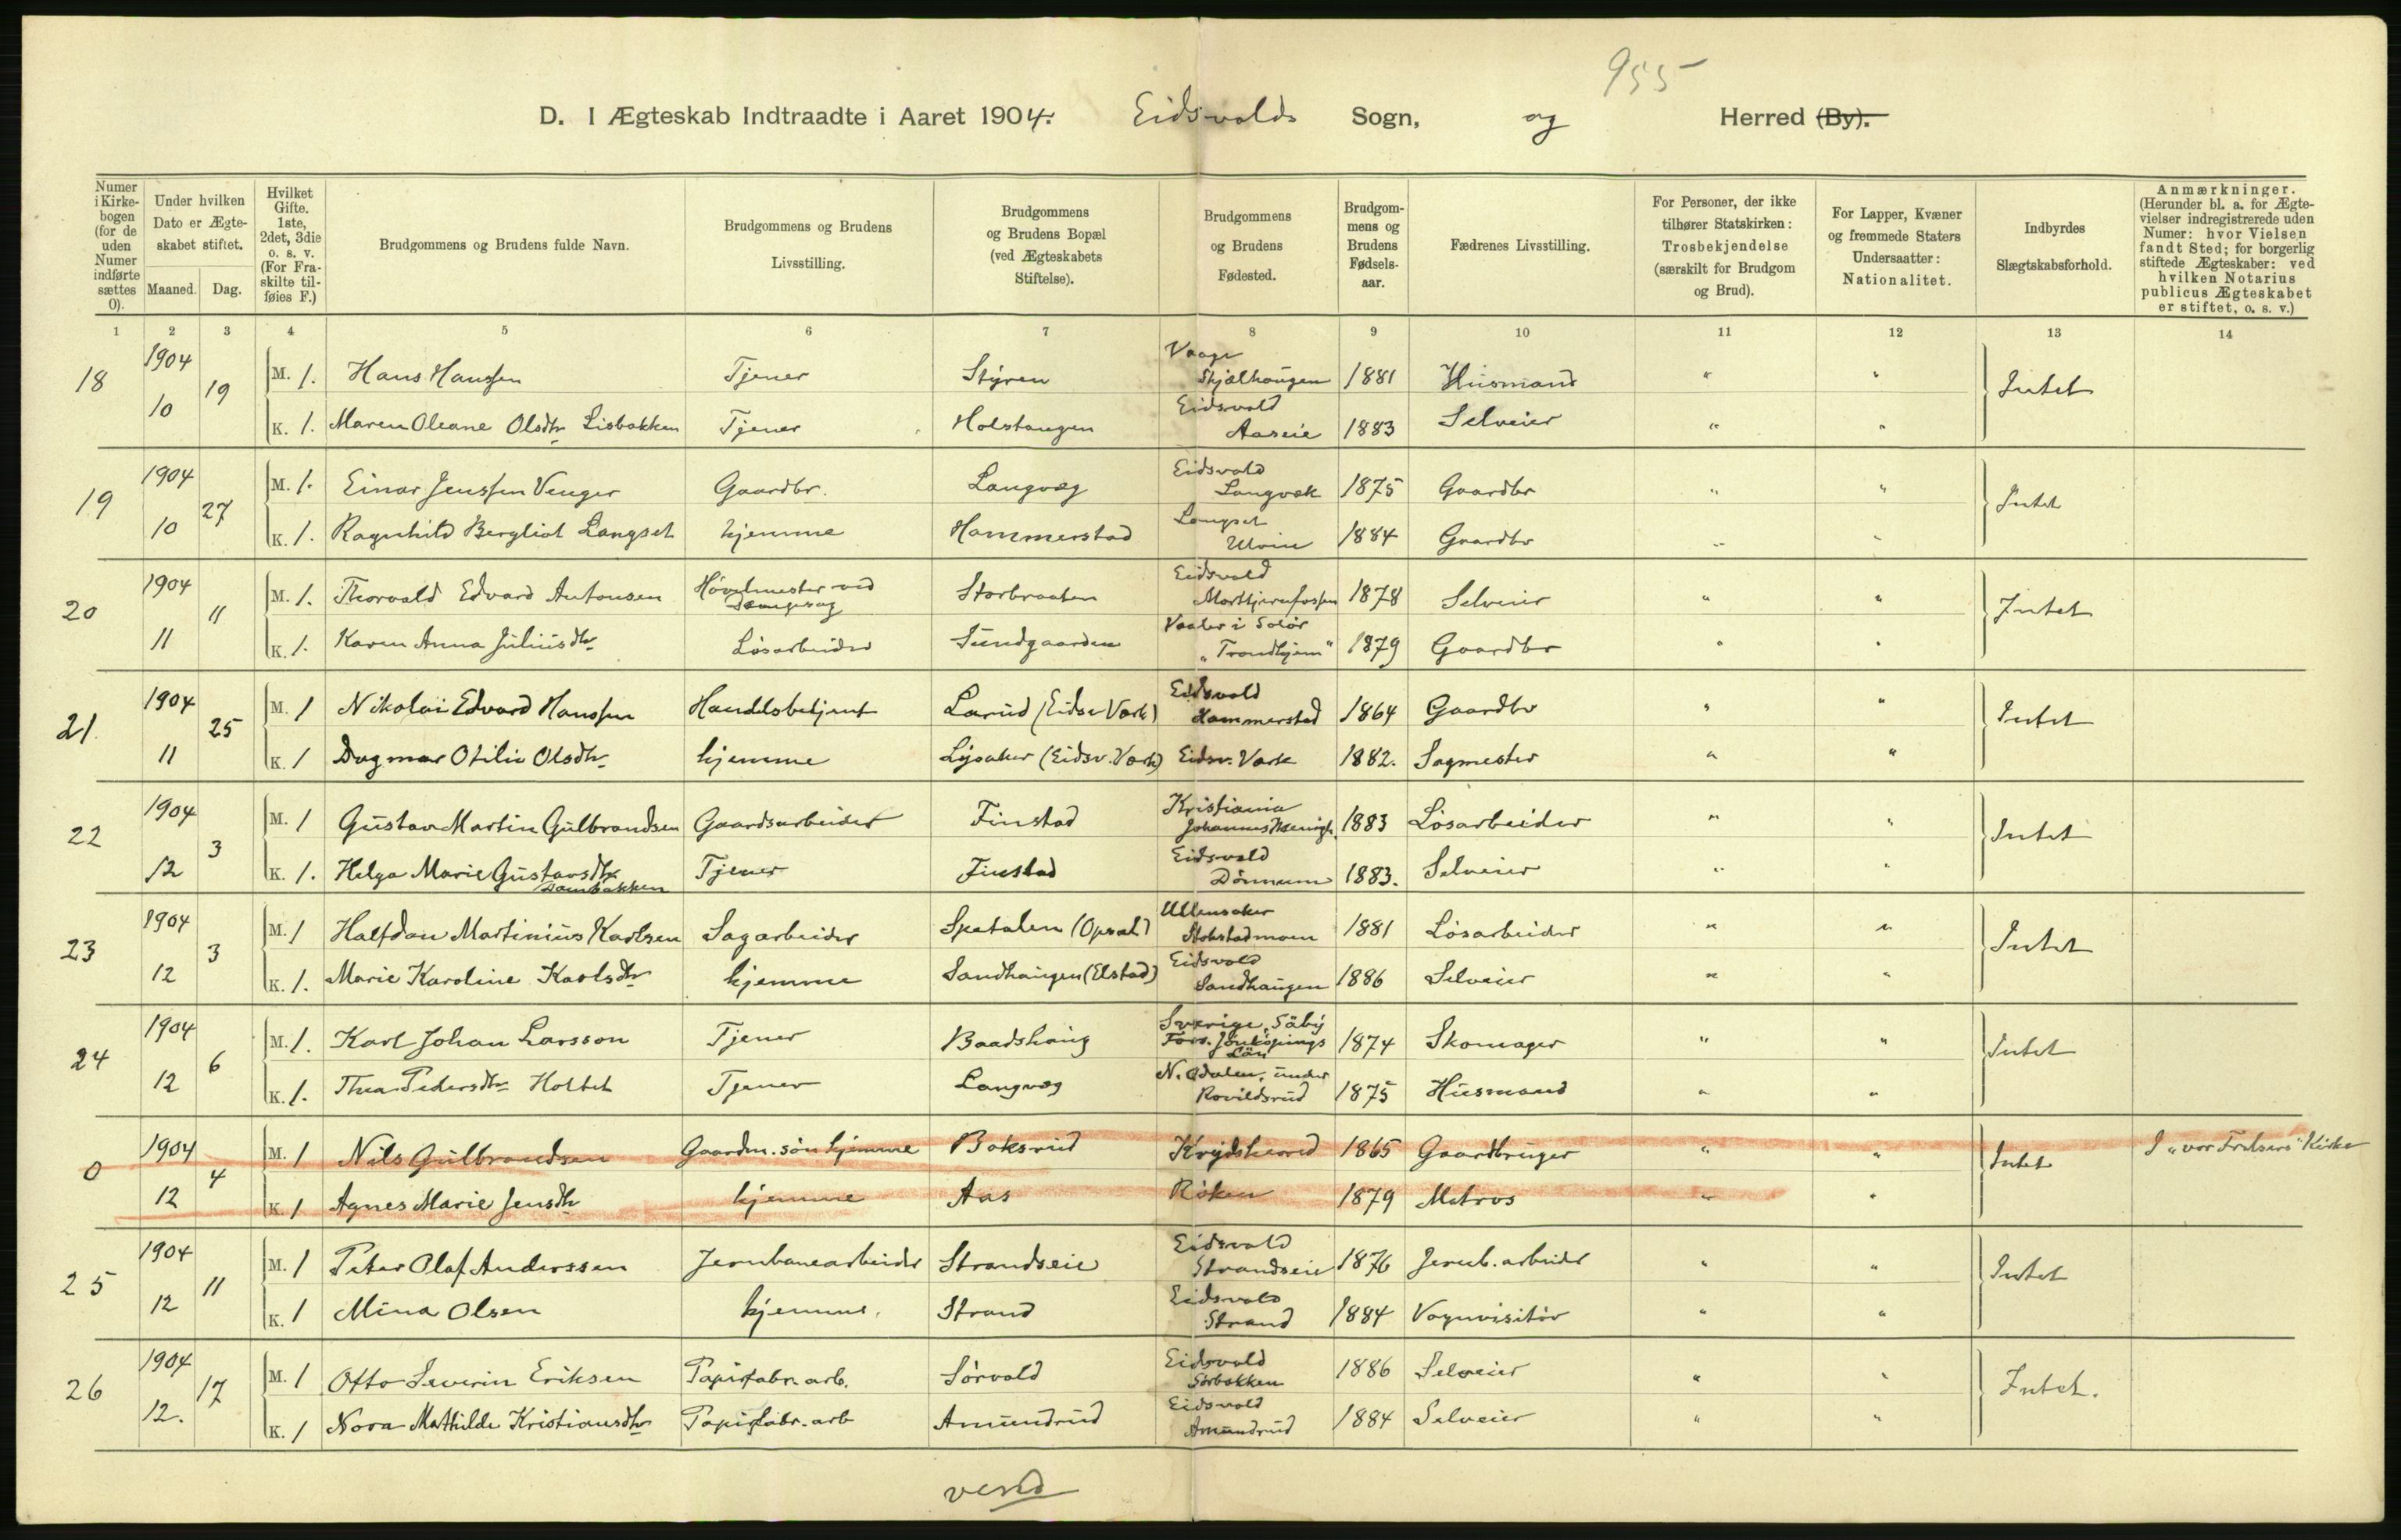 955
D. I Ægteskab Indtraadte i Aaret 1904. Eidsvolds Sogn, og Herred (By).
Numer i Kirkebogen (for de uden Numer indførte sættes 0).
Under hvilken Dato er Ægteskabet stiftet.
Maaned. Dag.
Hvilket Gifte. 1ste, 2det, 3die o. s. v. (For Fraskilte tilføies F.)
Brudgommens og Brudens fulde Navn.
Brudgommens og Brudens Livsstilling.
Brudgommens og Brudens Bopæl (ved Ægteskabets Stiftelse).
Brudgommens og Brudens Fødested.
Brudgommens og Brudens Fødselsaar.
Fædrenes Livsstilling.
For Personer, der ikke tilhører Statskirken: Trosbekjendelse (særskilt for Brudgom og Brud).
For Lapper, Kvæner og fremmede Staters Undersaatter: Nationalitet.
Indbyrdes Slægtskabsforhold.
Anmærkninger. (Herunder bl. a. for Ægtevielser indregistrerede uden Numer: hvor Vielsen fandt Sted; for borgerlig stiftede Ægteskaber: ved hvilken Notarius publicus Ægteskabet er stiftet, o. s. v.)
1 2 3 4 5 6 7 8 9 10 11 12 13 14
18 1904 10 19 M. 1. Hans Hanssen Tjener Styren Vaage Skjælhaugen 1881 Husmand " " Intet
K. 1. Maren Oleane Olsdtr Lisbakken Tjener Holstangen Eidsvold Aaseie 1883 Selveier " "
19 1904 10 27 M. 1. Einar Jenssen Venger Gaardbr. Langvæg Eidsvold Langvæk 1875 Gaardbr " " Intet
K. 1. Ragnhild Bergliot Langset hjemme Hammerstad Langset Ulvin 1884 Gaardbr " "
20 1904 11 11 M. 1. Thorvald Edvard Antonsen Høvelmester ved Storbraaten Eidsvold 1878 Selveier " " Intet
K. 1. Karen Anna Juliusdtr Løsarbeider Sundgaarden Vaaler i Solør "Trondhjem" 1879 Gaardbr " "
21 1904 11 25 M. 1 Nikolai Edvard Hanssen Handelsbetjent Larud (Eidsv Værk) Eidsvold Hammerstad 1864 Gaardbr " " Intet
K. 1 Dagmar Otilie Olsdtr hjemme Lysaker (Eidsv. Værk) Eidsv. Værk 1882. Sagmester " "
22 1904 12 3 M. 1 Gustav Martin Gulbrandsen Gaardsarbeider Finstad Kristiania Johannes Menigh. 1883 Løsarbeider " " Intet
K. 1. Helga Marie Gustavsdtr Dambakken Tjener Finstad Eidsvold Dønnum 1883. Selveier " "
23 1904 12 3 M. 1 Halfdan Martinius Karlsen Sagarbeider Spetalen (Opsal) Ullensaker Stokstadmoen 1881 Løsarbeider " " Intet
K. 1. Marie Karoline Karlsdtr hjemme Sandhaugen (Elstad) Eidsvold Sandhaugen 1886 Selveier " "
24 1904 12 6 M. 1. Karl Johan Larsson Tjener Baadshaug Sverige, Säby Förs. Jönköpings Län 1874 Skomager " " Intet
K. 1. Thea Pedersdtr Holtet Tjener Langvæg N. Odalen, under Rovildsrud 1875 Husmand " "
0 1904 12 4 M. 1 Nils Gulbrandsen Gaardm. søn hjemme Boksrud Krydsherred 1865 Gaardbruger " " Intet I "vor Frelsers" Kirke
K. 1 Agnes Marie Jensdtr hjemme Aas Røken 1879 Matros " "
25 1904 12 11 M. 1 Peter Olaf Anderssen Jernbanearbeider Strandseie Eidsvold Strandseie 1876 Jernb. arbeider " " Intet
K. 1 Mina Olsen hjemme. Strand Eidsvold Strand 1884 Vognvisitør " "
26 1904 12. 17 M. 1 Otto Severin Eriksen Papirfabr. arb. Sørvold Eidsvold Sørbakken 1886 Selveier " " Intet.
K. 1 Nora Mathilde Kristiansdtr Papirfabr. arb Amundrud Eidsvold Amundrud 1884 Selveier " "
vend